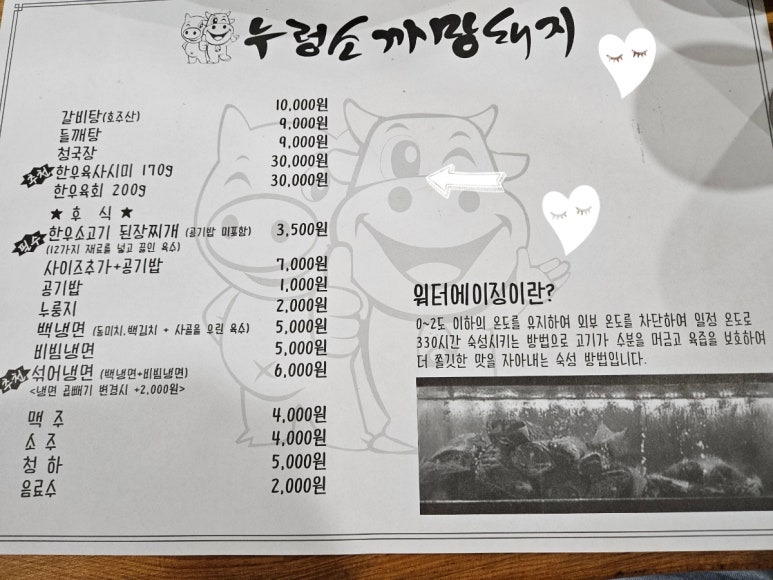 누렁소 까망돼지
갈비탕(호주산) 10,000원
들깨탕 9,000원
청국장 9,000원
추천 한우육사시미 170g 30,000원
한우육회 200g 30,000원
★ 후 식 ★
필수 한우소고기 된장찌개 (공기밥 미포함) 3,500원
(12가지 재료를 넣고 끓인 육수)
사이즈추가+공기밥 7,000원
공기밥 1,000원
누룽지 2,000원
백냉면 (동미치,백김치 + 사골을 우린 육수) 5,000원
비빔냉면 5,000원
추천 섞어냉면 (백냉면+비빔냉면) 6,000원
<냉면 곱빼기 변경시 +2,000원>
맥 주 4,000원
소 주 4,000원
청 하 5,000원
음료수 2,000원
워터에이징이란?
0~2도 이하의 온도를 유지하여 외부 온도를 차단하여 일정 온도로
330시간 숙성시키는 방법으로 고기가 수분을 머금고 육즙을 보호하여
더 쫄깃한 맛을 자아내는 숙성 방법입니다.